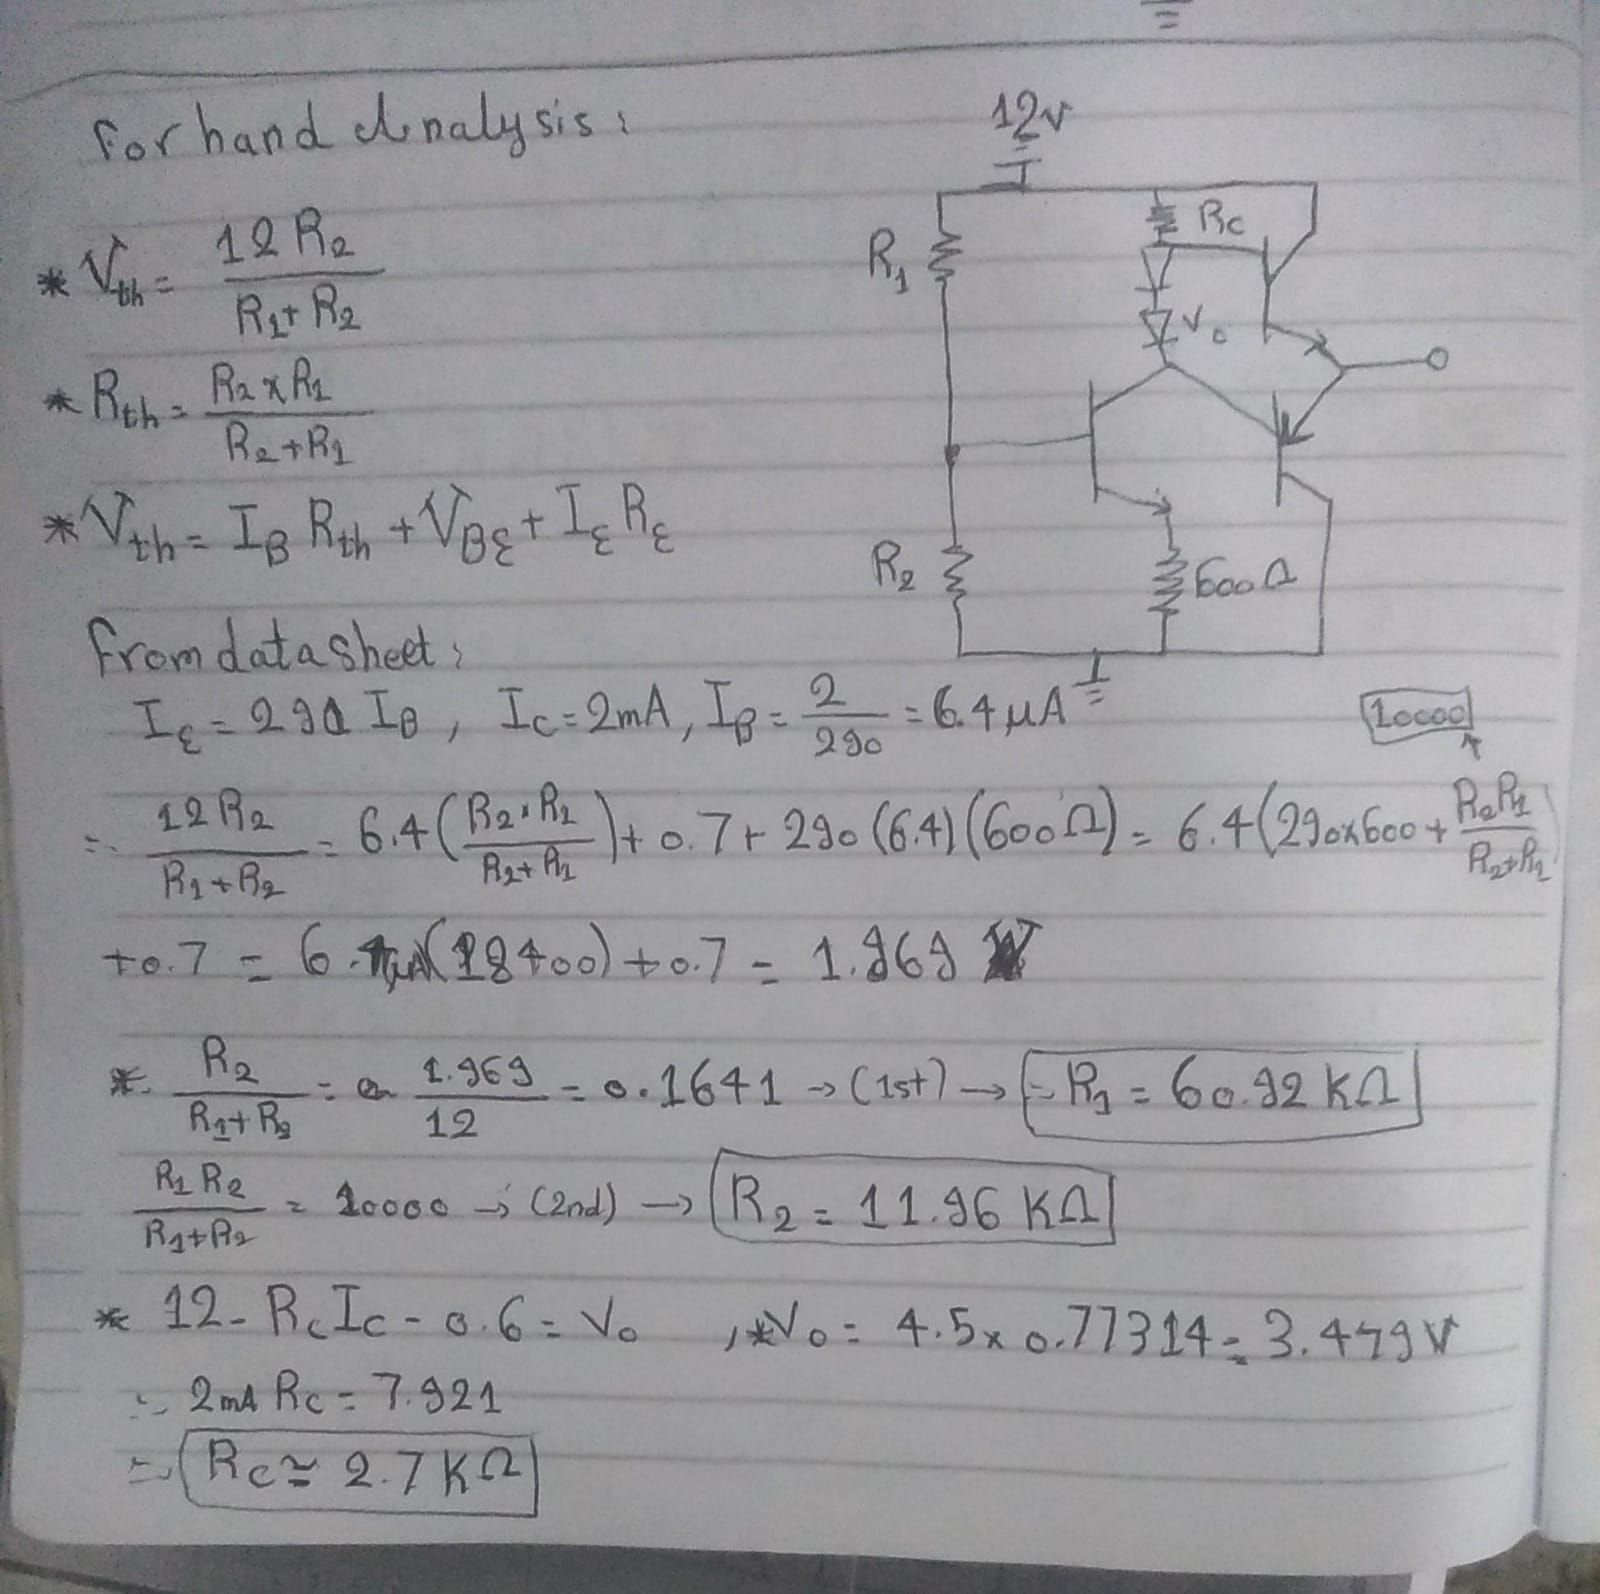 For hand Analysis:
12v
* Vth = 12 R2 / (R1 + R2)
R1
Rc
Vo
* Rth = (R2 x R1) / (R2 + R1)
* Vth = IB Rth + VBE + IE RE
R2
600 Ω
From data sheet:
IE = 290 IB, IC = 2mA, IB = 2 / 290 = 6.4 μA
10000
∴ 12 R2 / (R1 + R2) = 6.4 (R2 x R1 / (R2 + R1)) + 0.7 + 290 (6.4) (600 Ω) = 6.4 (290x600 + R2 R1 / (R2 + R1)
+0.7 = 6.4μ (18400) + 0.7 = 1.969
* R2 / (R1 + R2) = 1.969 / 12 = 0.1641 → (1st) → ∴ R1 = 60.92 KΩ
R1 R2 / (R1 + R2) = 10000 → (2nd) → R2 = 11.96 KΩ
* 12 - Rc Ic - 0.6 = Vo , * Vo = 4.5 x 0.77314 = 3.479 V
∴ 2mA Rc = 7.921
∴ Rc ≃ 2.7 KΩ